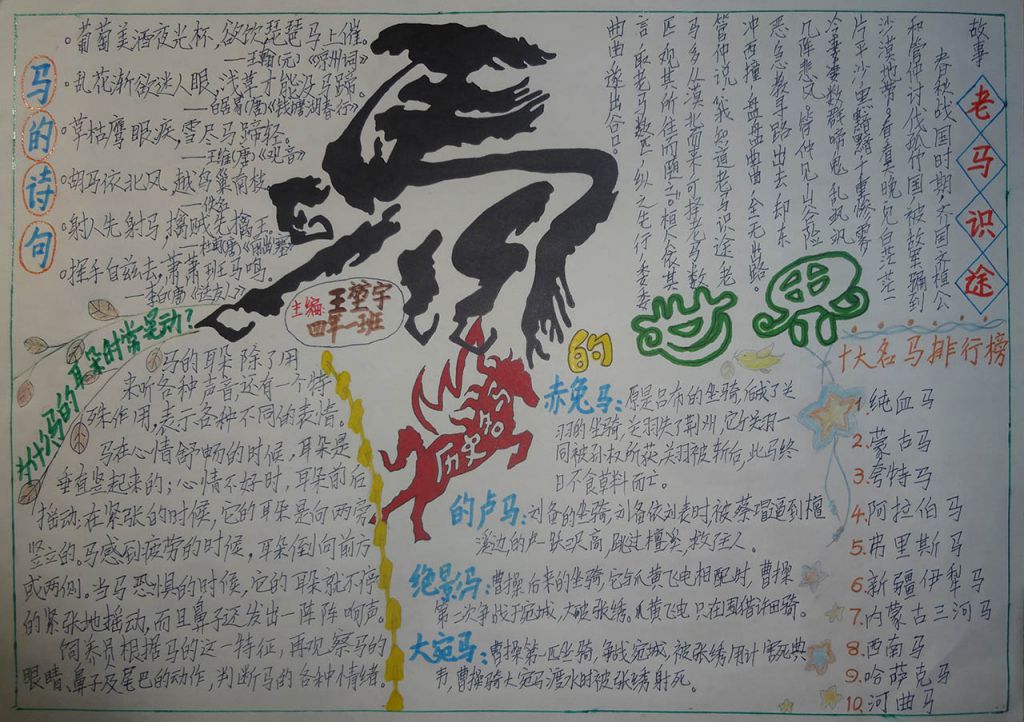 马的诗句
葡萄美酒夜光杯,欲饮琵琶马上催。
——王翰(元)《凉州词》
乱花渐欲迷人眼,浅草才能没马蹄。
——白居易(唐)《钱塘湖春行》
草枯鹰眼疾,雪尽马蹄轻。
——王维(唐)《观
胡马依北风,越鸟巢南枝
——佚名
射人先射马,擒贼先擒王。
——杜甫(唐)《前出塞》
挥手自兹去,萧萧班马鸣。
——李白(唐)《送友人》
老马识途
故事
春秋战国时期,齐国齐桓公
和管仲讨伐孤竹国,被敌军骗到
沙漠地带。看看天晚,只见白茫茫一
片平沙,黑黯黯千重惨雾,
冷凄凄数群啼鬼,乱飒飒
几阵悲风。管仲见山谷险
恶,急教寻路出去,却东
冲西撞,盘盘曲曲,全无出路。
管仲说:我知道老马识途,老
马多从漠北而来,可择老马数
匹,观其所往而随之。桓公依其
言,取老马数匹,纵之先行,委委
曲曲,遂出谷口。
主编:王堃宇
四年一班
马的世界
为什么马的耳朵时常晃动?
马的耳朵除了用
来听各种声音,还有一个特
殊作用,表示各种不同的表情。
马在心情舒畅的时候,耳朵是
垂直竖起来的;心情不好时,耳朵前后
摇动;在紧张的时候,它的耳朵是向两旁
竖立的。马感到疲劳的时候,耳朵倒向前方
或两侧。当马恐惧的时候,它的耳朵就不停
的紧张地摇动,而且鼻子还发出一阵阵响声。
饲养员根据马的这一特征,再观察马的
眼睛、鼻子及尾巴的动作,判断马的各种情绪。
历史名马
赤兔马:原是吕布的坐骑,后成了关
羽的坐骑,关羽失了荆州,它与关羽一
同被孙权所获,关羽被斩后,此马终
日不食草料而亡。
的卢马:刘备的坐骑,刘备依刘表时,被蔡瑁逼到檀
溪边,的卢一跃三丈高,跳过檀溪,救了主人。
绝景马:曹操后来的坐骑,它与爪黄飞电相配时,曹操
第二次争战于宛城,大破张绣。爪黄飞电只在围猎许田骑。
大宛马:曹操第一匹坐骑,争战宛城,被张绣用计害死典
韦,曹操骑大宛马渡水时被张绣射死。
十大名马排行榜
1.纯血马
2.蒙古马
3.夸特马
4.阿拉伯马
5.弗里斯马
6.新疆伊犁马
7.内蒙古三河马
8.西南马
9.哈萨克马
10.河曲马